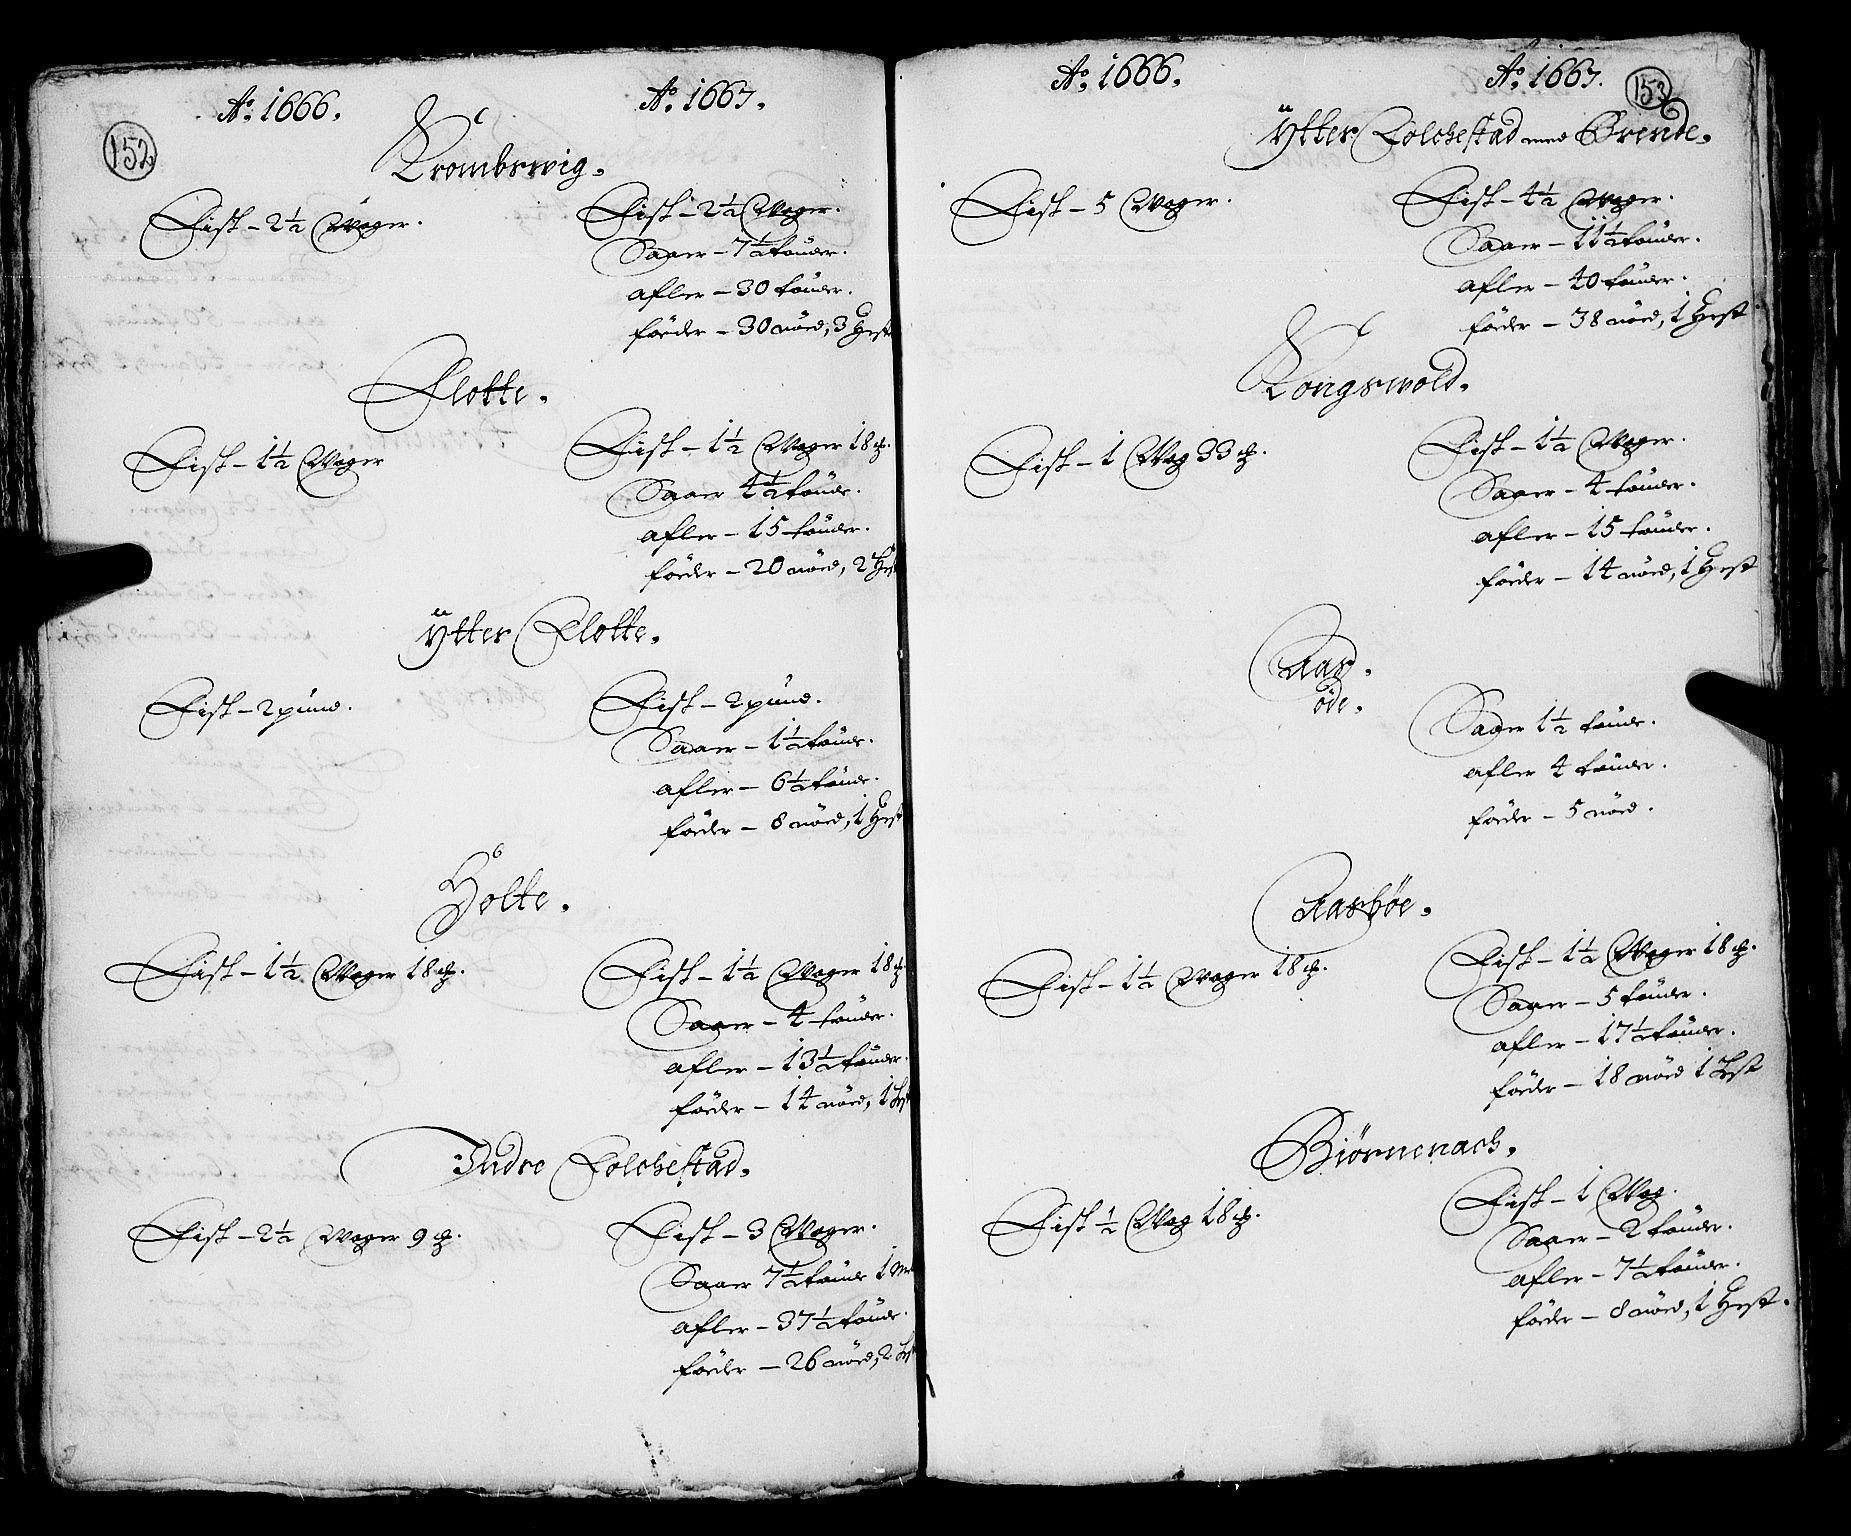 152
Aō. 1666.
Aō. 1667.
Krombswig.
Fisk – 2½ Woger.
Fisk – 2½ Woger.
Saaer – 7½ tønder.
afler – 30 tønder.
föeder – 30 nöed, 3 Hest
Flotte.
Fisk – 1½ Woger
Fisk – 1½ Woger 18 ℔.
Saaer 4½ tønde.
afler – 15 tønder.
föeder – 20 nöed, 2 Hest
Ÿtter Flotte.
Fisk – 2 pund.
Fisk – 2 pund.
Saaer – 1½ tønde.
afler – 6½ tønde.
föeder – 8 nöed, 1 Hest
Holte.
Fisk – 1½ Woger 18 ℔.
Fisk – 1½ Woger 18 ℔.
Saaer – 4 tønder.
afler – 13½ tønder.
föeder – 14 nöed, 1 Hest
Indre Folchestad.
Fisk – 2½ Woger 9 ℔.
Fisk – 3 Woger.
Saaer 7½ tønde 1
afler – 37½ tønde.
föeder – 26 nöed, 2 Hest
153
Aō. 1666.
Aō. 1667.
Ÿtter Folchestad med Örende.
Fisk – 5 Woger.
Fisk – 4½ Woger.
Saaer – 11½ tønder.
afler – 40 tønder.
föeder – 38 nöed, 1 Hest
Kongswold.
Fisk – 1 Wog 33 ℔.
Fisk – 1½ Woger.
Saaer – 4 tønder.
afler – 15 tønder.
föeder – 14 nöed, 1 Hest
Aas.
öde.
Saaer 1½ tønde.
afler 4 tønder.
föeder – 5 nöed.
Aasböe.
Fisk – 1½ Woger 18 ℔.
Fisk – 1½ Woger 18 ℔.
Saaer – 5 tønder.
afler – 17½ tønder.
föeder – 18 nöed 1 Hest
Biörnenach.
Fisk ½ Wog 18 ℔.
Fisk – 1 Wog.
Saaer – 2 tønder.
afler – 7½ tønder.
föeder – 8 nöed, 1 Hest.